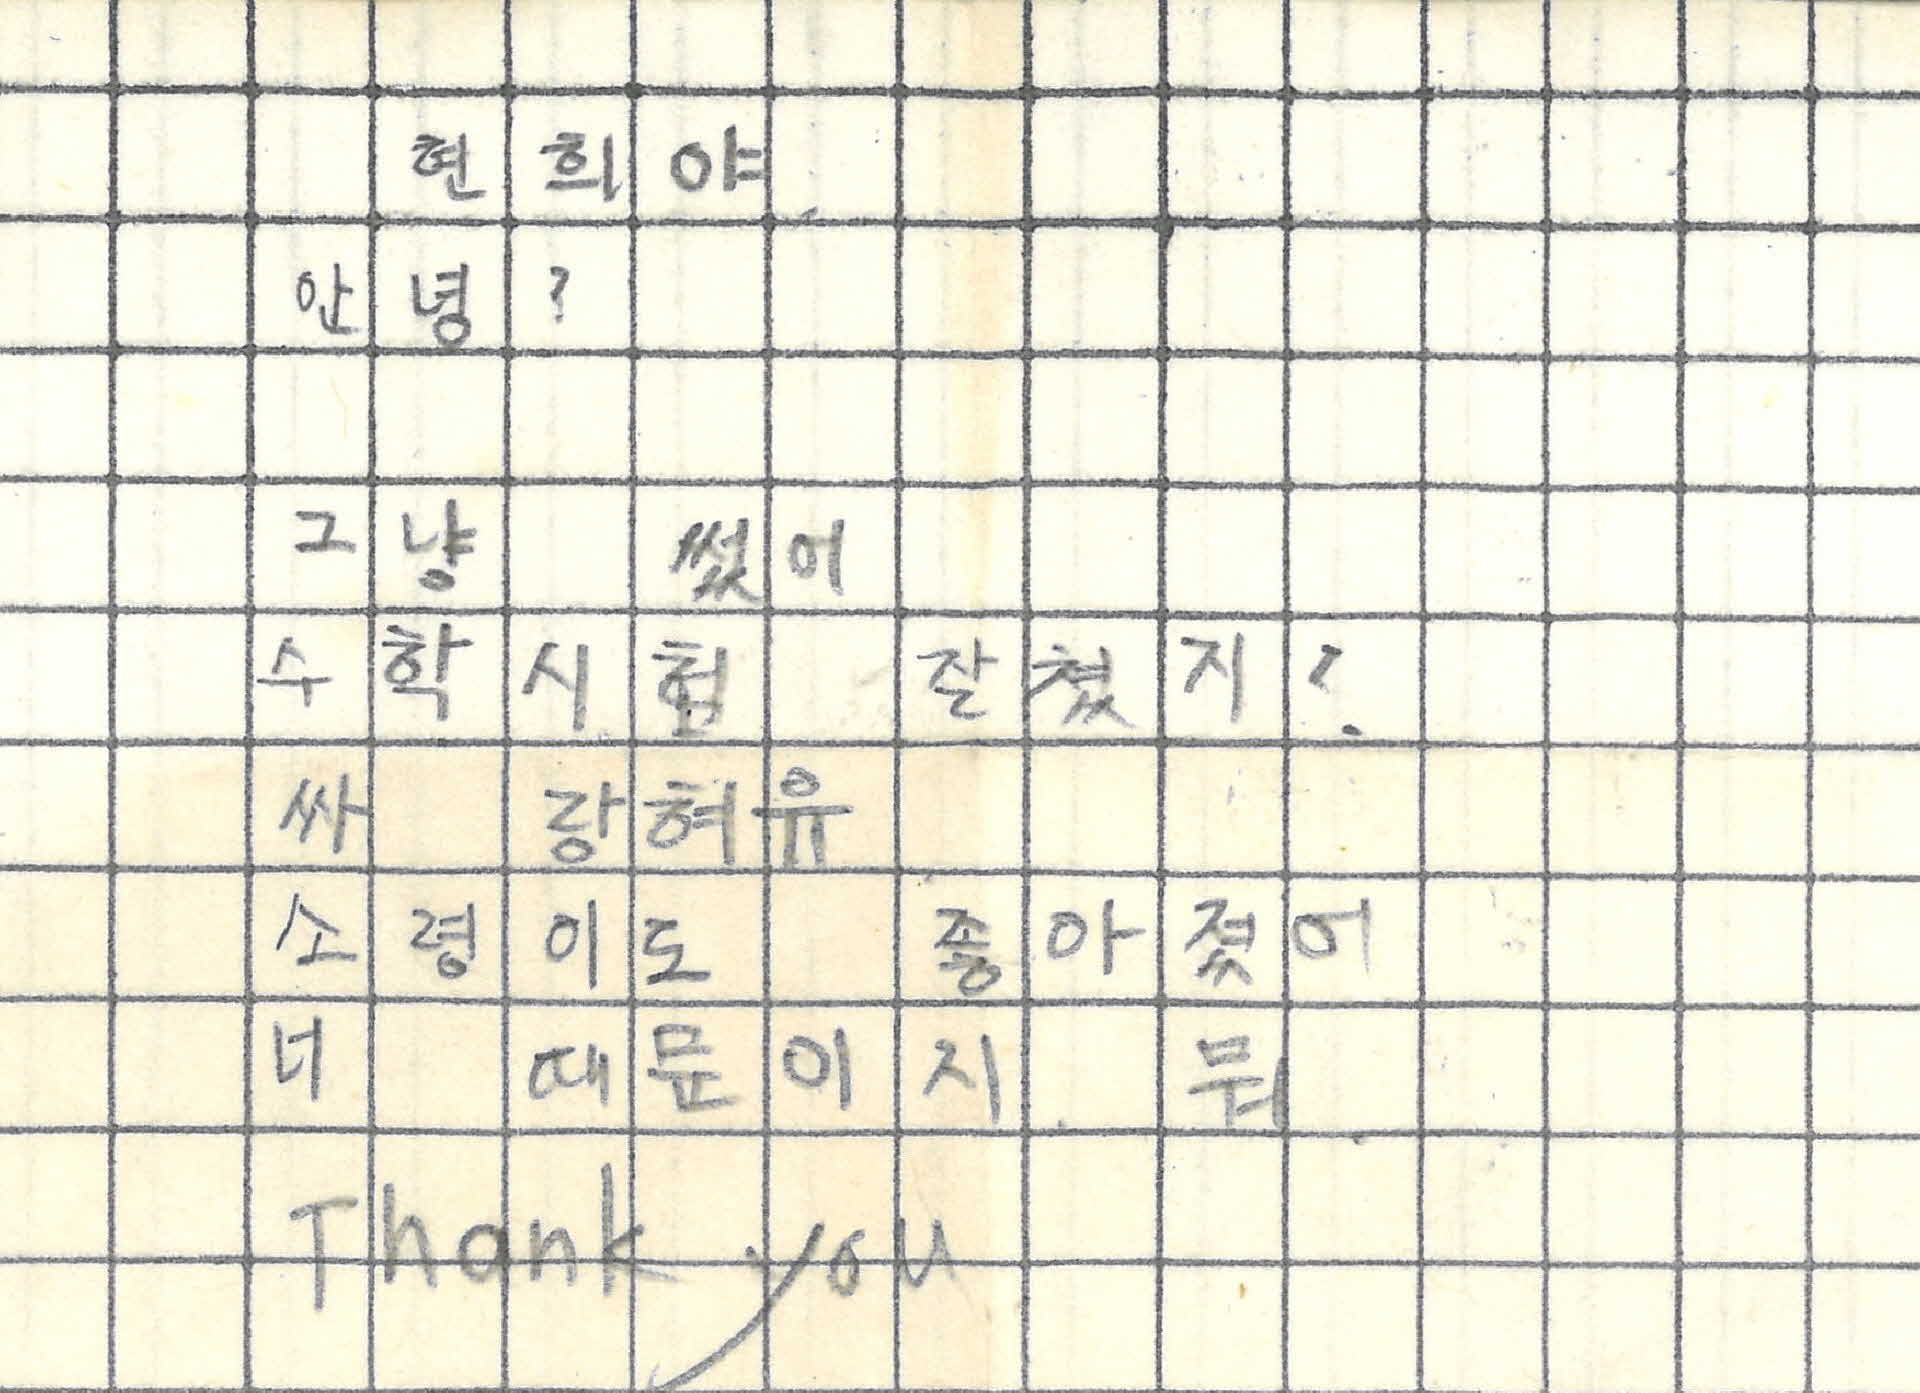 현희야
안녕?
그냥 썼어
수학시험 잘쳤지?
싸 랑혀유
소령이도 좋아졌어
너 때문이지 뭐
Thank you